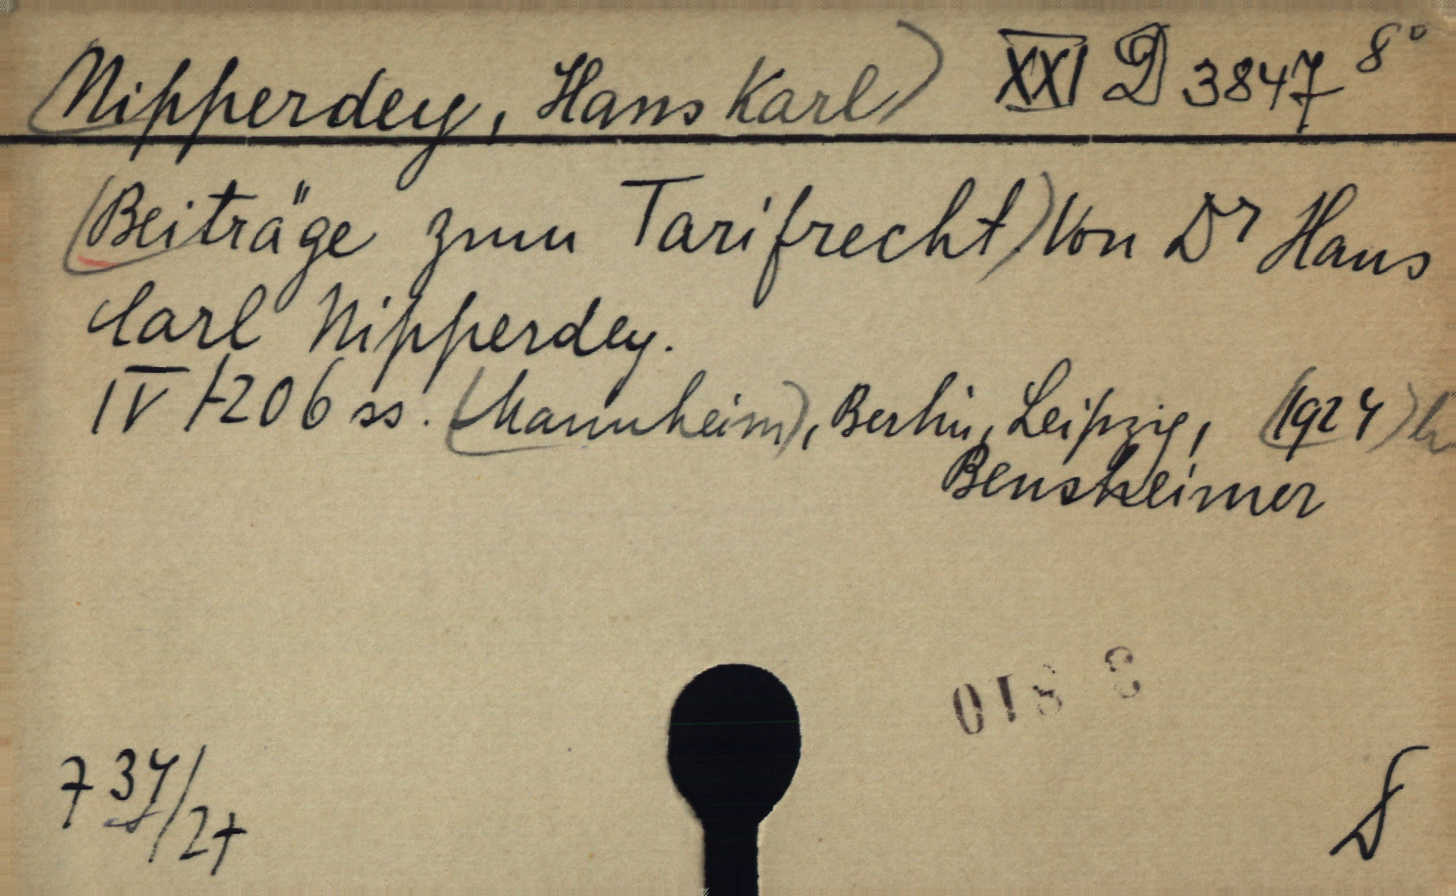 (Nipperdey, Hans Karl) XXI D 3847 8°
(Beiträge zum Tarifrecht) Von Dr Hans
Carl Nipperdey.
IV + 206 ss. (Mannheim), Berlin, Leipzig, (1924)
Bensheimer